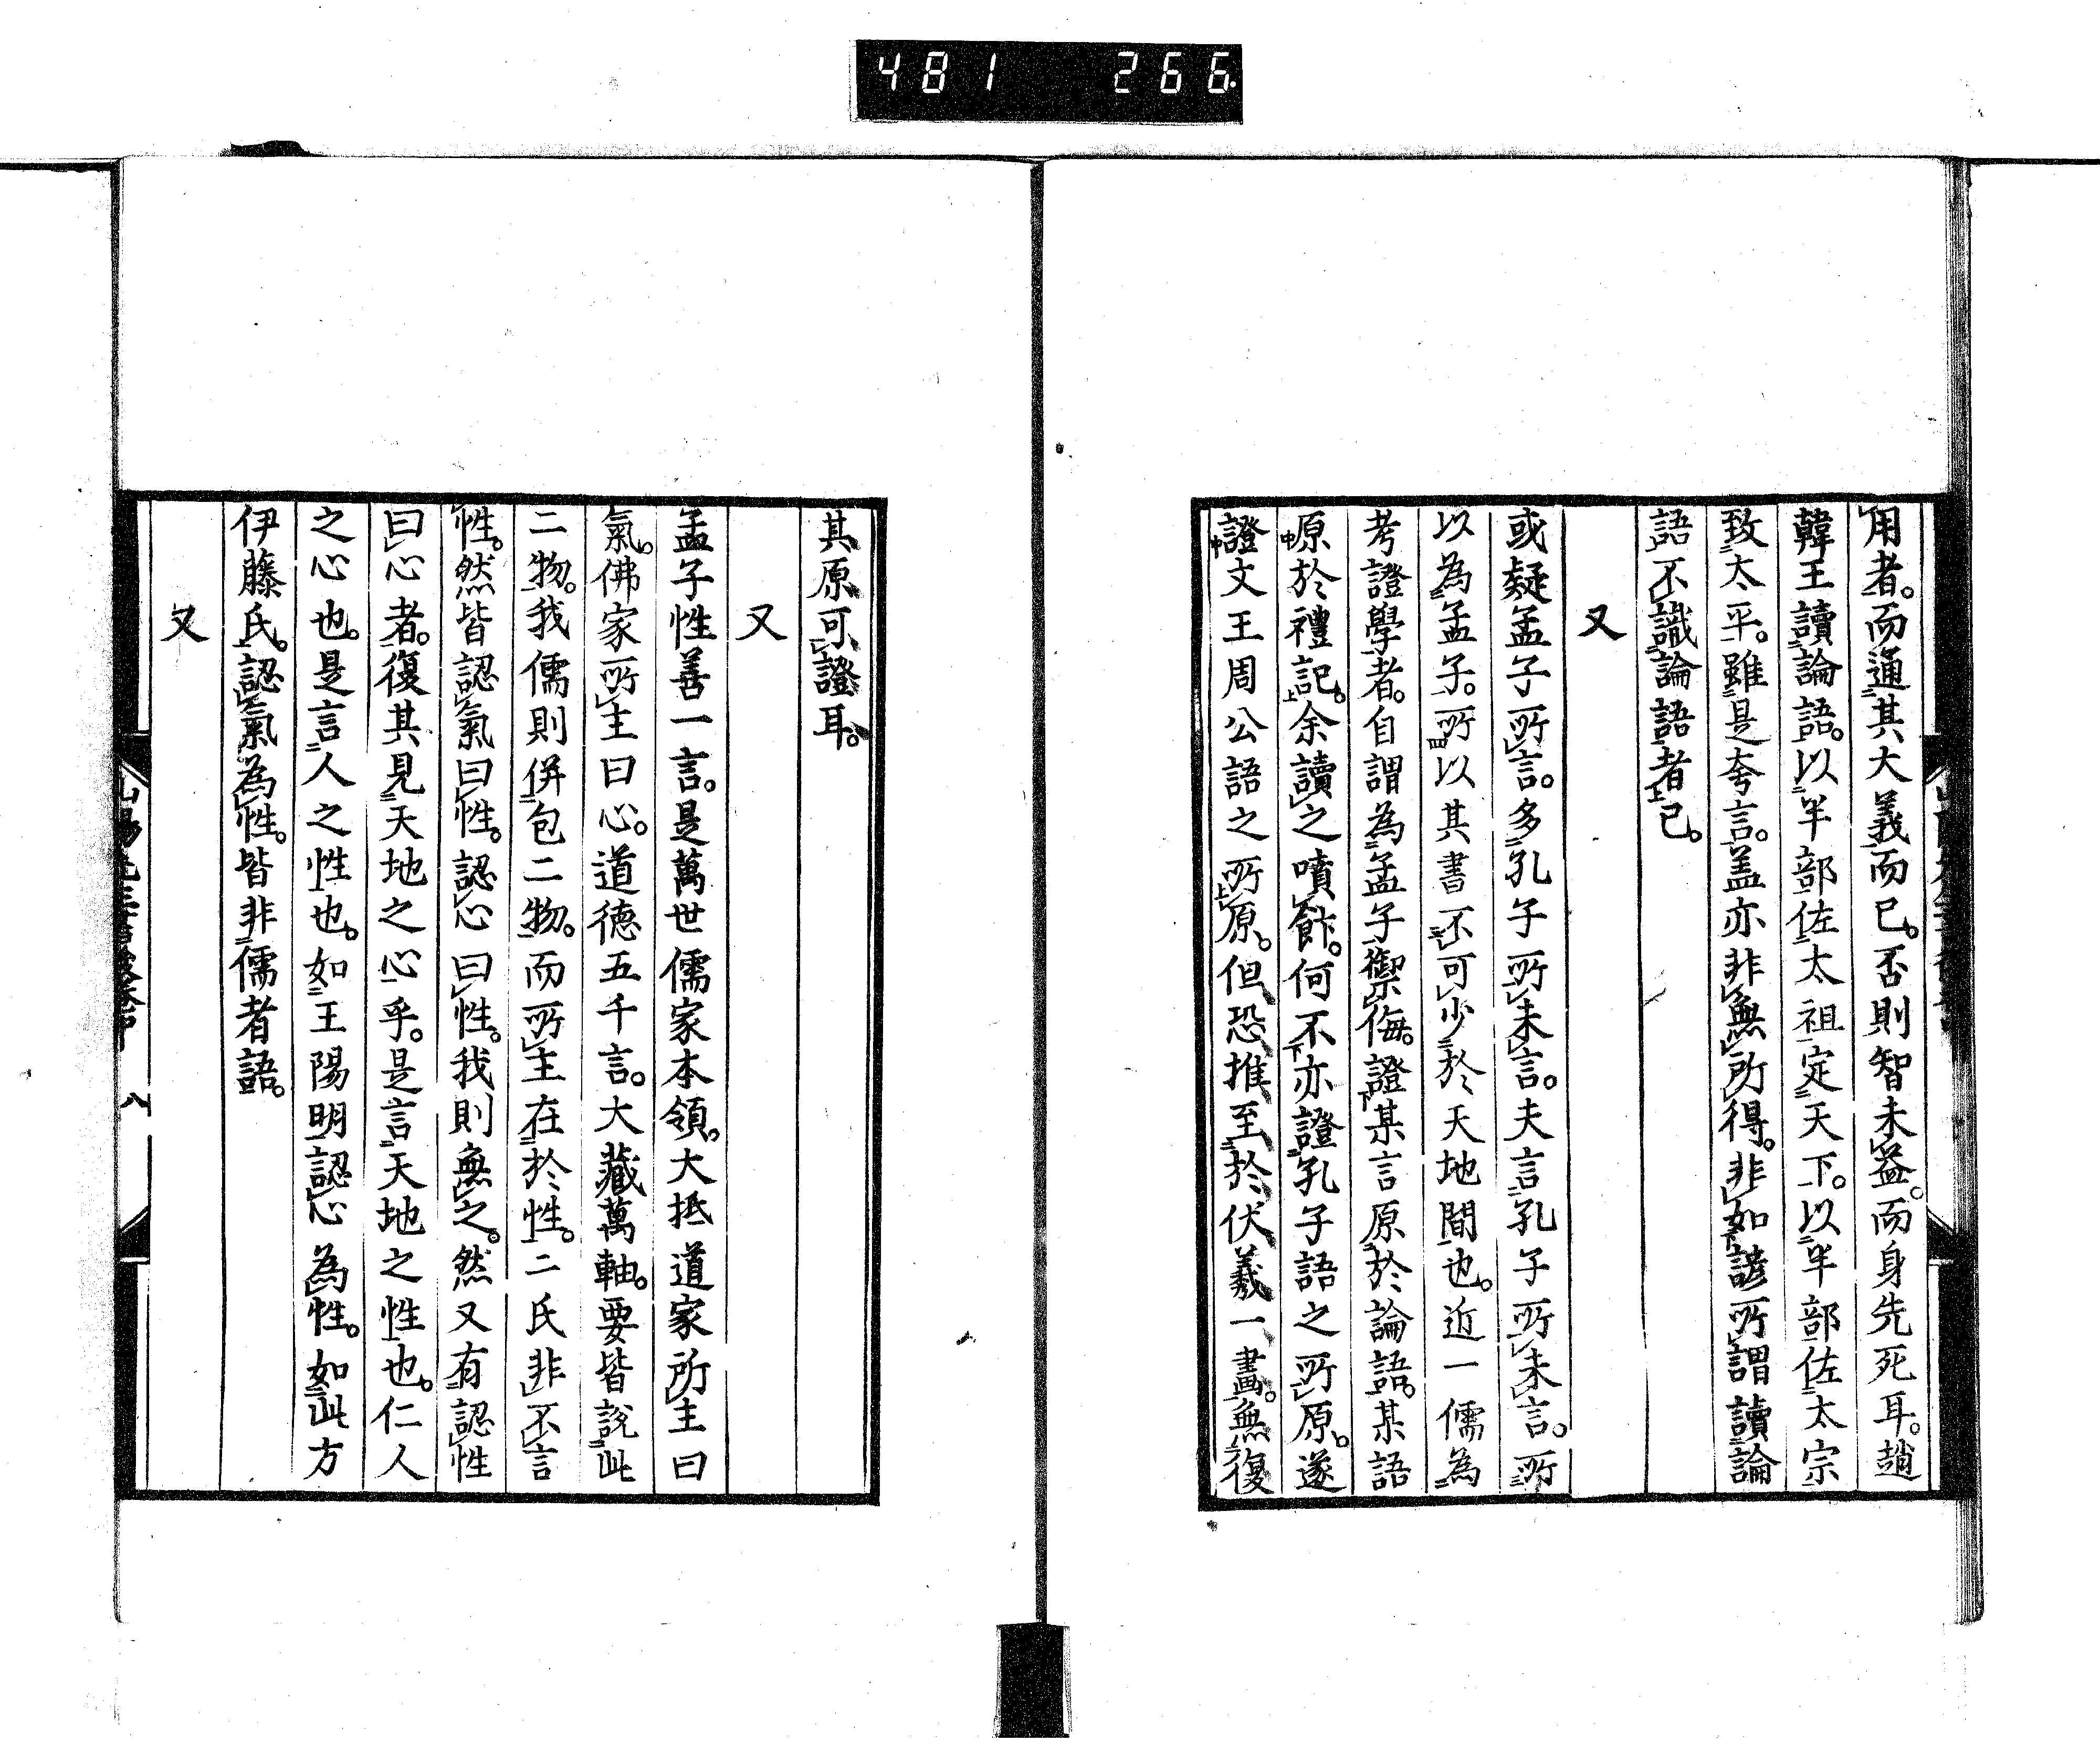 481 266
用者。而通其大義而已。否則智未益。而身先死耳。趙
韓王讀論語。以半部佐太祖定天下。以半部佐太宗
致太平。雖是夸言。盖亦非無所得。非如諺所謂讀論
語不識論語者已。
又
或疑孟子所言。多孔子所未言。夫言孔子所未言。所
以為孟子。所以其書不可少於天地間也。近一儒為
考證學者。自謂為孟子禦侮。證某言原於論語。某語
原於禮記。余讀之噴飯。何不亦證孔子語之所原。遂
證文王周公語之所原。但恐推至於伏羲一畫。無復
其原可證耳。
又
孟子性善一言。是萬世儒家本領。大抵道家所主曰
氣。佛家所主曰心。道德五千言。大藏萬軸。要皆說此
二物。我儒則併包二物。而所主在於性。二氏非不言
性。然皆認氣曰性。認心曰性。我則無之。然又有認性
曰心者。復其見天地之心乎。是言天地之性也。仁人
之心也。是言人之性也。如王陽明認心為性。如此方
伊藤氏。認氣為性。皆非儒者語。
又
八